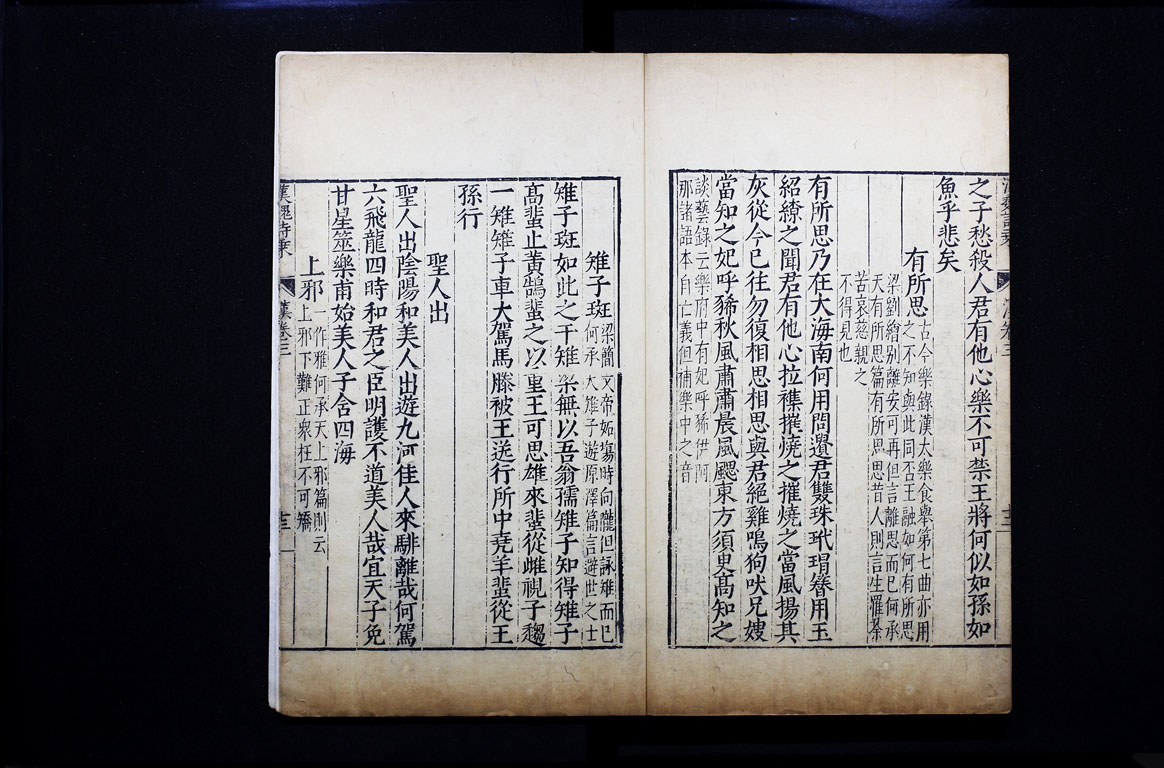 之子愁殺人君有他心樂不可禁王將何似如孫如
魚乎悲矣
有所思
古今樂錄漢太樂食舉第七曲亦用
之不知與此同否王融如何有所思
梁劉繪別離安可再但言離思而已何承
天有所思篇有所思思昔人則言生罹荼
苦哀慈親之
不得見也
有所思乃在大海南何用問遺君雙珠玳瑁簪用玉
紹繚之聞君有他心拉襍摧燒之摧燒之當風揚其
灰從今已往勿復相思相思與君絕雞鳴狗吠兄嫂
當知之妃呼豨秋風肅肅晨風颸東方須臾高知之
談藝錄云樂府中有妃呼豨伊阿
那諸語本自亡義但補樂中之音
雉子斑
梁簡文帝妬場時向隴但詠雉而已
何承天雉子遊原澤篇言避世之士
雉子斑如此之干雉梁無以吾翁孺雉子知得雉子
高蜚止黃鵠蜚之以重王可思雄來蜚從雌視子趨
一雉雉子車大駕馬滕被王送行所中堯羊蜚從王
孫行
聖人出
聖人出陰陽和美人出遊九河佳人來騑離哉何駕
六飛龍四時和君之臣明護不道美人哉宜天子免
甘星筮樂甫始美人子含四海
上邪
一作雅何承天上邪篇則云
上邪下難正衆枉不可矯
漢魏詩乘
漢卷三